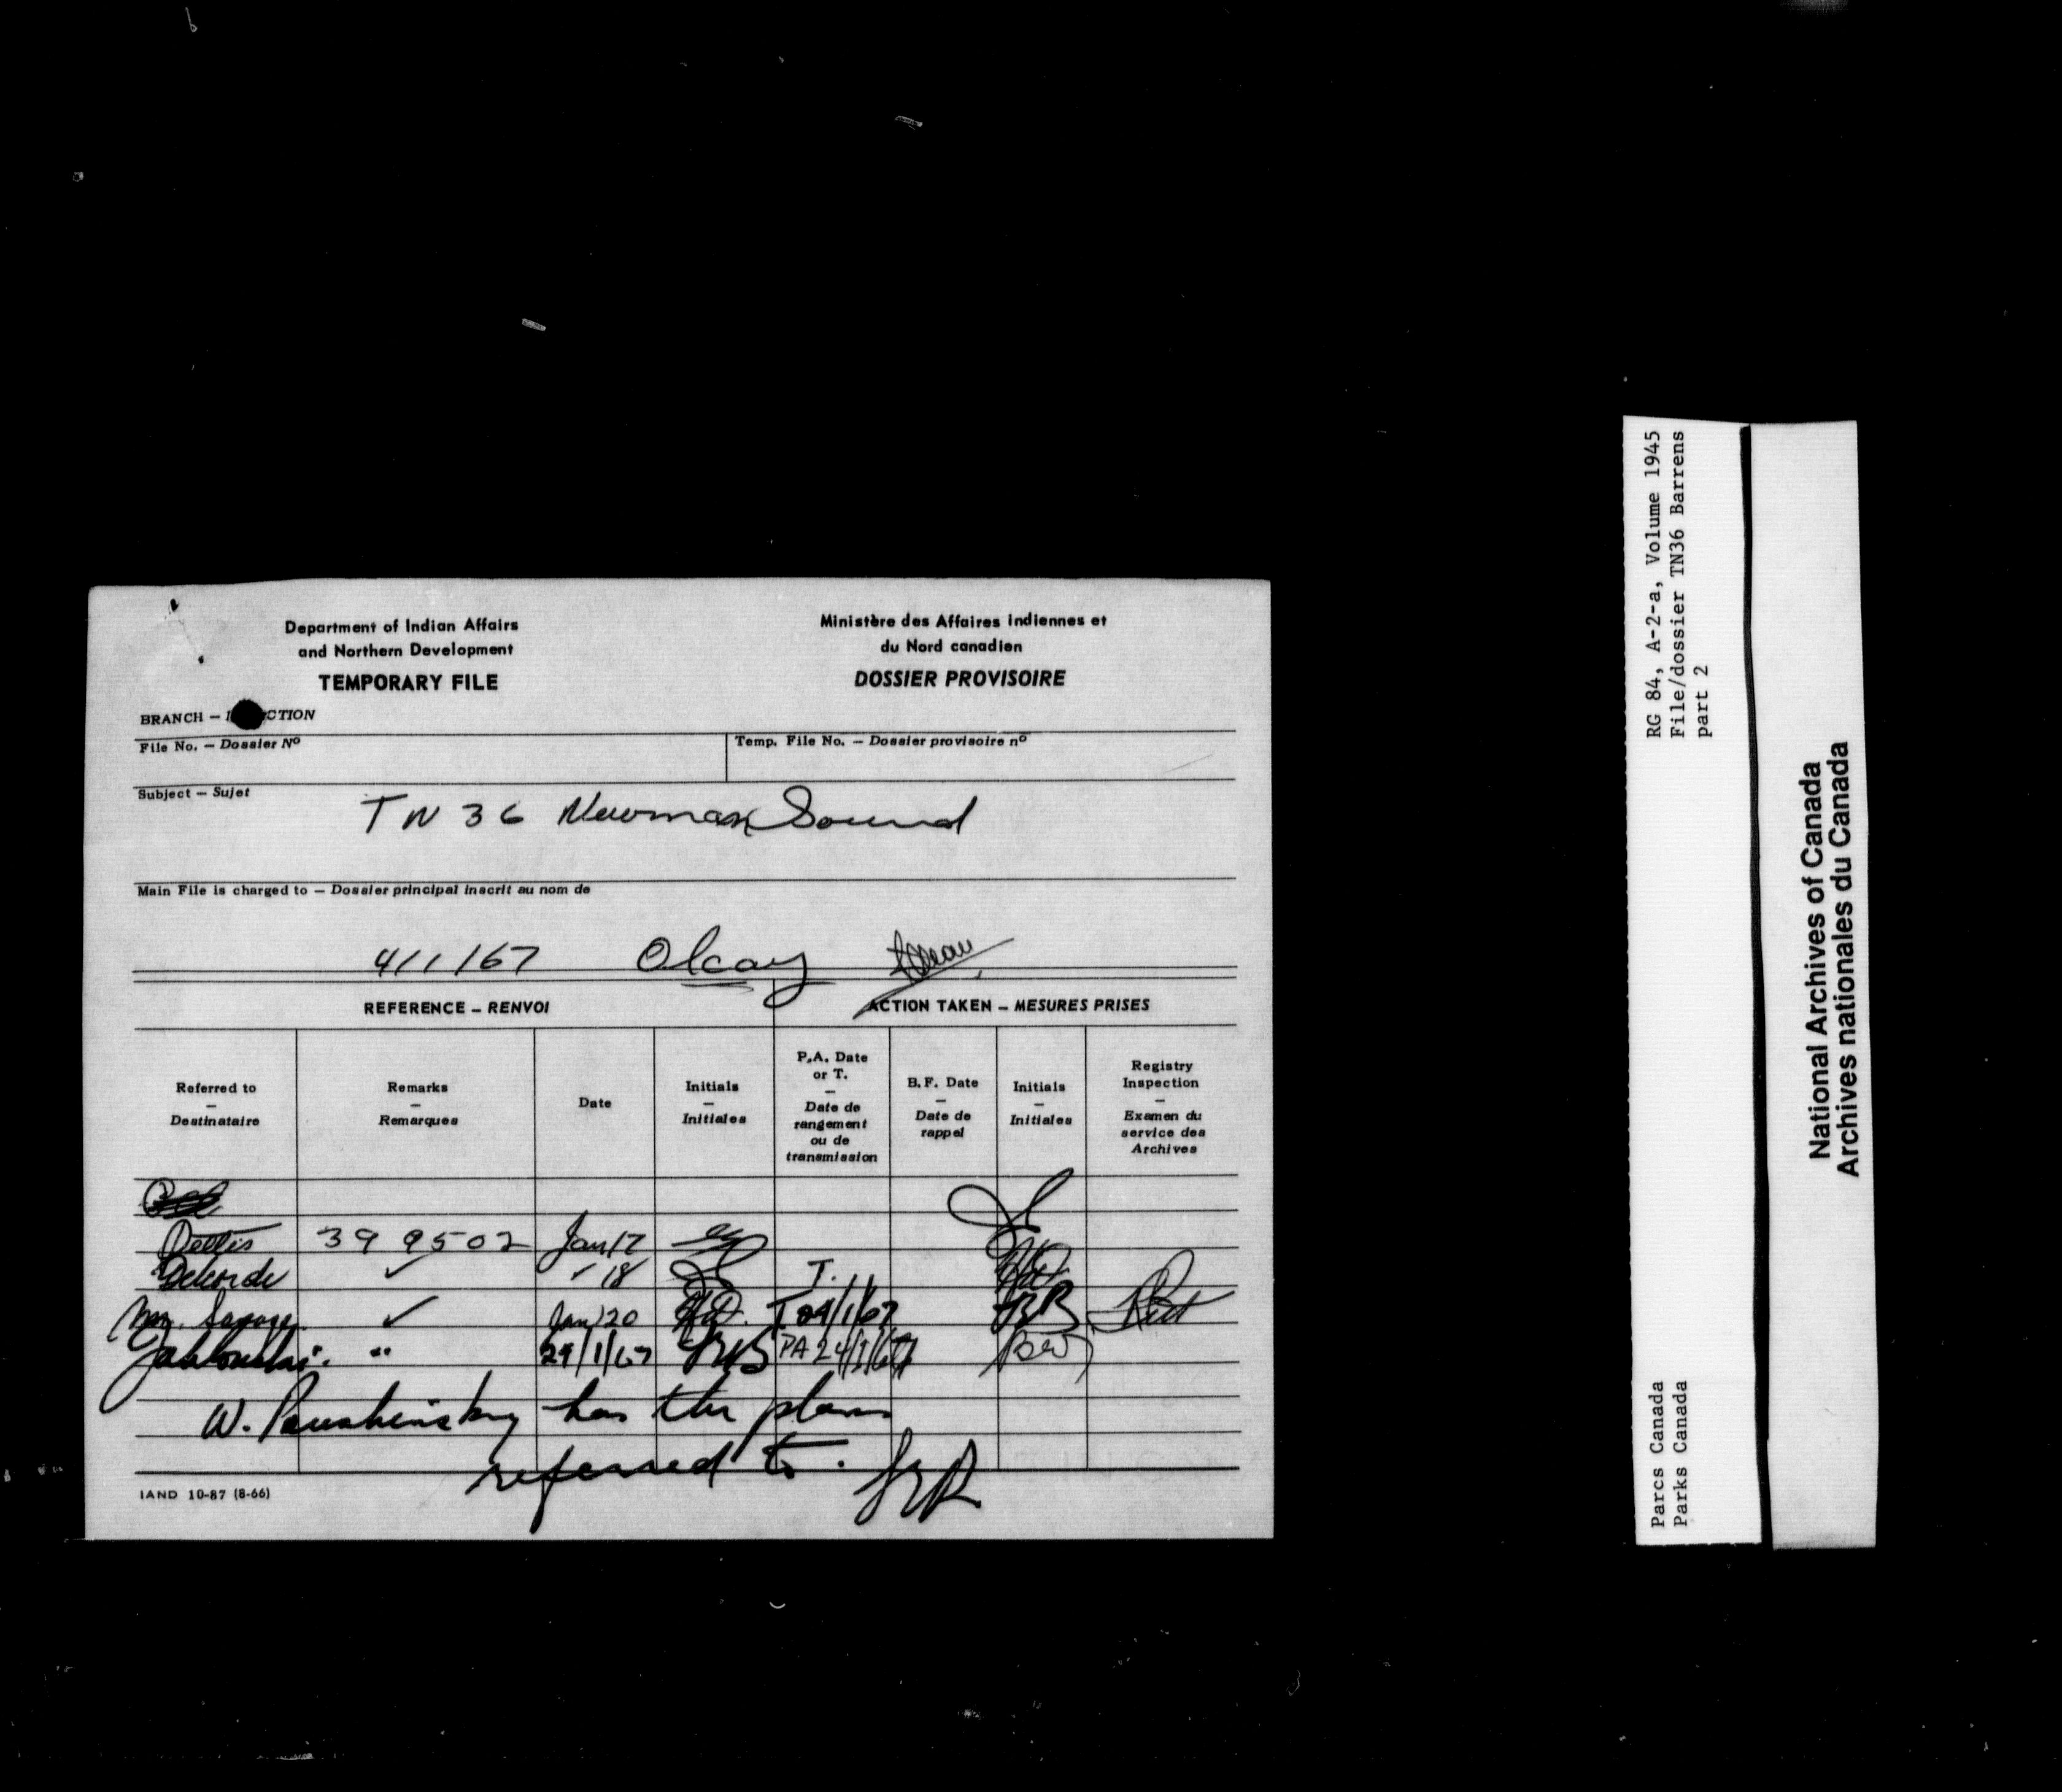 Department of Indian Affairs
and Northern Development
TEMPORARY FILE
Ministère des Affaires indiennes et
du Nord canadien
DOSSIER PROVISOIRE
BRANCH – CTION
File No. – Dossier Nº
Temp. File No. – Dossier provisoire nº
Subject – Sujet
TN 36 Newman Sound
Main File is charged to – Dossier principal inscrit au nom de
4/1/67 Olcay
REFERENCE – RENVOI
ACTION TAKEN – MESURES PRISES
Referred to
–
Destinataire
Remarks
–
Remarques
Date
Initials
–
Initiales
P.A. Date
or T.
–
Date de
rangement
ou de
transmission
B.F. Date
–
Date de
rappel
Initials
–
Initiales
Registry
Inspection
–
Examen du
service des
Archives
399502 Jan 17
✓ 18 T.
✓ Jan 20 T. 24/1/67
" 24/1/67 PA 24/1/67
W. has the plans
referred to.
IAND 10-87 (8-66)
RG 84, A-2-a, Volume 1945
File/dossier TN36 Barrens
part 2
Parcs Canada
Parks Canada
National Archives of Canada
Archives nationales du Canada